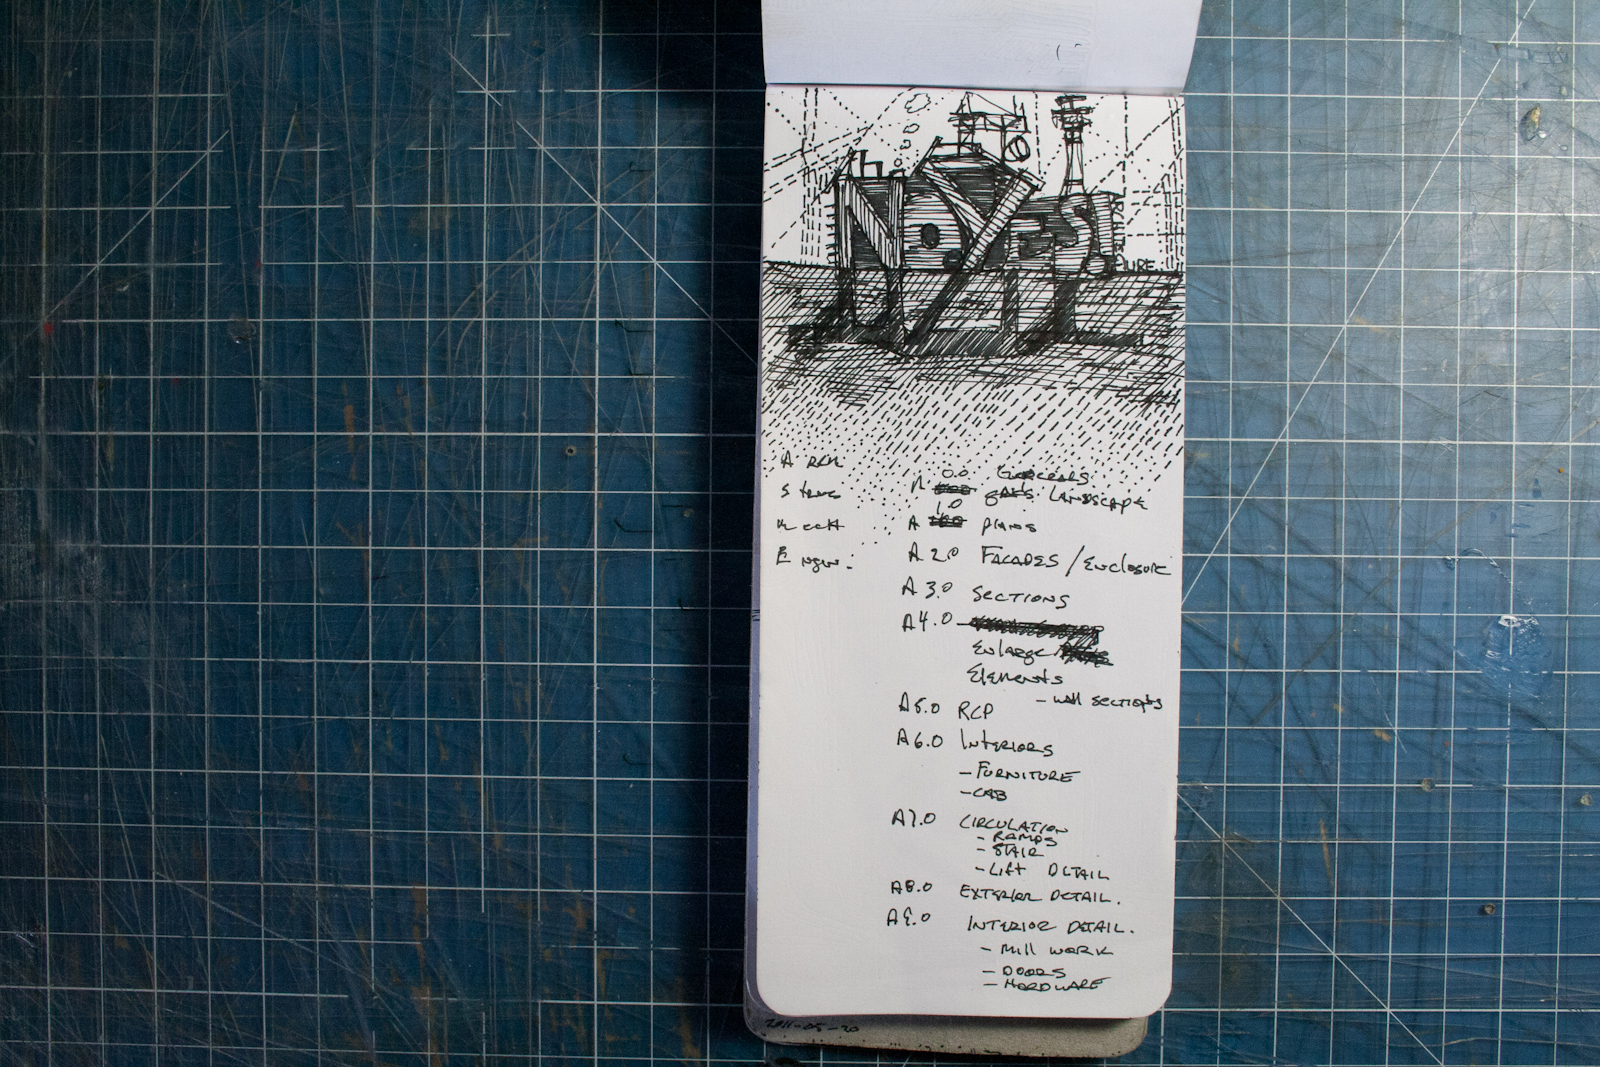 NOYES
A RCH
S TRUC
M ECH
E NGIN.
A 0.0 GENERALS
LANDSCAPE
A 1.0 PLANS
A 2.0 FACADES / ENCLOSURE
A 3.0 SECTIONS
A4.0
ENLARGE
ELEMENTS
- WALL SECTIONS
A5.0 RCP
A6.0 INTERIORS
- FURNITURE
- CAB
A7.0 CIRCULATION
- RAMPS
- STAIR
- Lift DETAIL
A8.0 EXTERIOR DETAIL.
A9.0 INTERIOR DETAIL.
- Mill WORK
- DOORS
- HARDWARE
2011-05-20